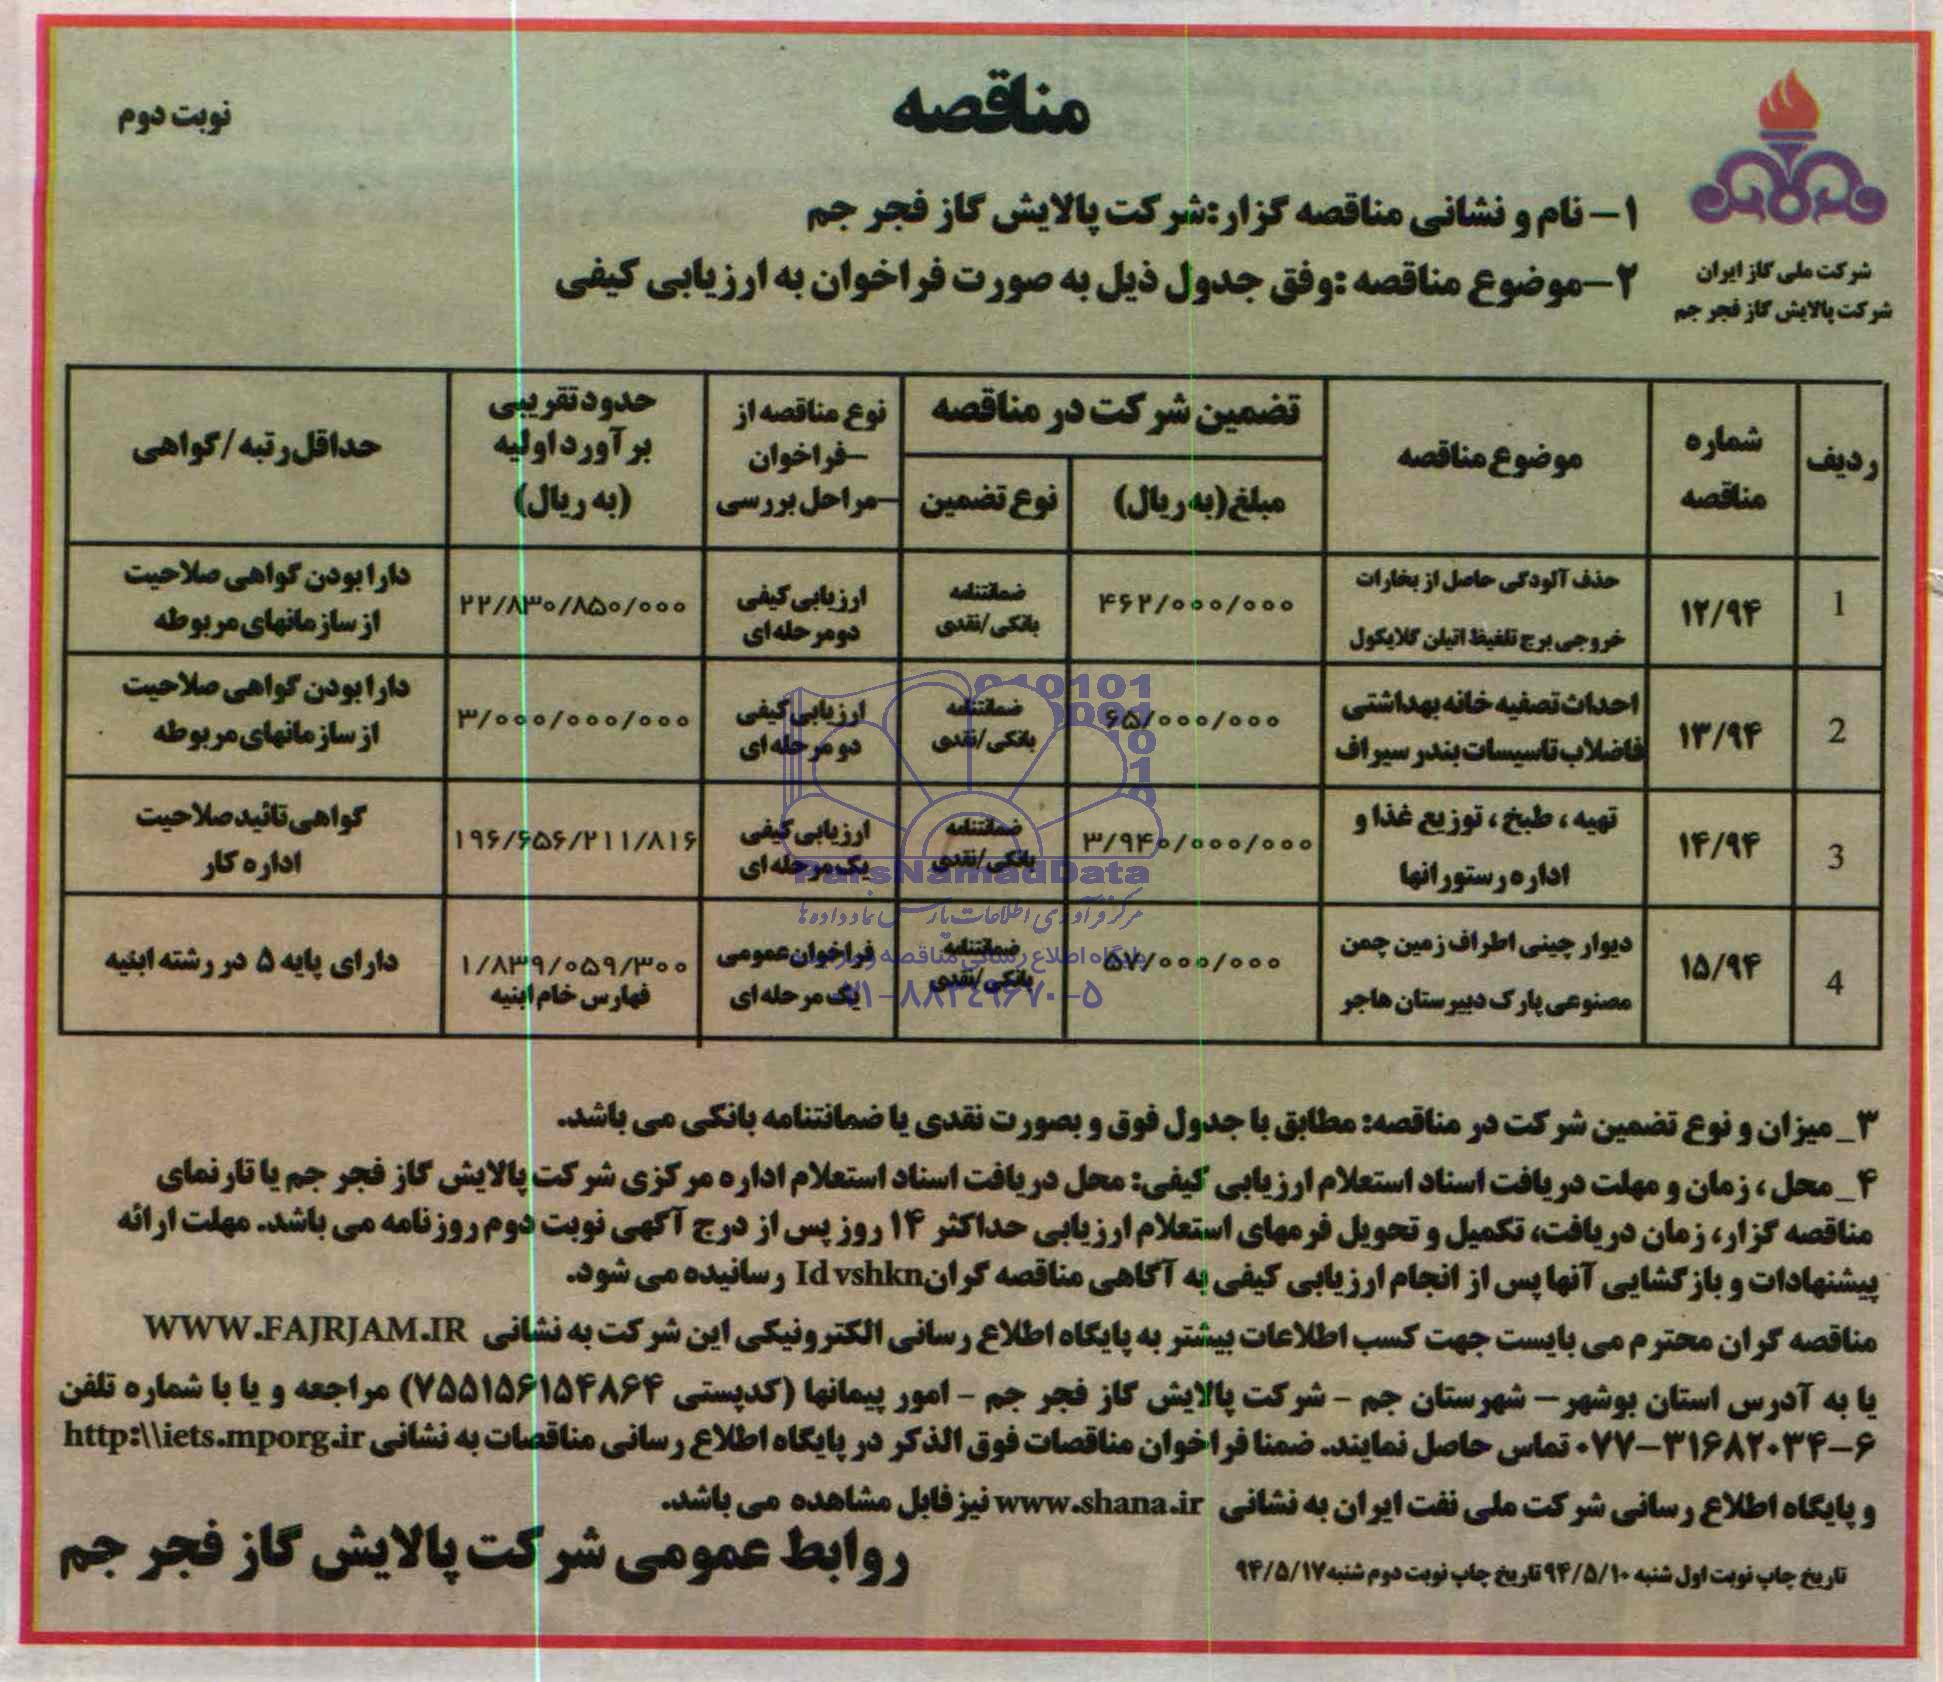 مناقصه
نوبت دوم
شرکت ملی گاز ایران
شرکت پالایش گاز فجر جم
۱- نام و نشانی مناقصه گزار:شرکت پالایش گاز فجر جم
۲-موضوع مناقصه :وفق جدول ذیل به صورت فراخوان به ارزیابی کیفی
ردیف
شماره
مناقصه
موضوع مناقصه
تضمین شرکت در مناقصه
مبلغ(به ریال)
نوع تضمین
نوع مناقصه از
-فراخوان
-مراحل بررسی
حدود تقریبی
برآورد اولیه
(به ریال)
حداقل رتبه /گواهی
1
۱۲/۹۴
حذف آلودگی حاصل از بخارات
خروجی برج تلغیظ اتیلن گلایکول
۴۶۲/۰۰۰/۰۰۰
ضمانتنامه
بانکی/نقدی
ارزیابی کیفی
دومرحله ای
۲۲/۸۳۰/۸۵۰/۰۰۰
دارا بودن گواهی صلاحیت
از سازمانهای مربوطه
2
۱۳/۹۴
احداث تصفیه خانه بهداشتی
فاضلاب تاسیسات بندر سیراف
۶۵/۰۰۰/۰۰۰
ضمانتنامه
بانکی/نقدی
ارزیابی کیفی
دو مرحله ای
۳/۰۰۰/۰۰۰/۰۰۰
دارا بودن گواهی صلاحیت
از سازمانهای مربوطه
3
۱۴/۹۴
تهیه ، طبخ ، توزیع غذا و
اداره رستورانها
۳/۹۴۰/۰۰۰/۰۰۰
ضمانتنامه
بانکی/نقدی
ارزیابی کیفی
یک مرحله ای
۱۹۶/۶۵۶/۲۱۱/۸۱۶
گواهی تائید صلاحیت
اداره کار
4
۱۵/۹۴
دیوار چینی اطراف زمین چمن
مصنوعی پارک دبیرستان هاجر
۵۷/۰۰۰/۰۰۰
ضمانتنامه
بانکی/نقدی
فراخوان عمومی
یک مرحله ای
۱/۸۳۹/۰۵۹/۳۰۰
فهارس خام ابنیه
دارای پایه ۵ در رشته ابنیه
ParsNamadData
مرکز فرآوری اطلاعات پارس نماد داده ها
پایگاه اطلاع رسانی مناقصه و
۰۲۱-۸۸۳۴۹۶۷۰-۵
۳_ میزان و نوع تضمین شرکت در مناقصه: مطابق با جدول فوق و بصورت نقدی یا ضمانتنامه بانکی می باشد.
۴_ محل ، زمان و مهلت دریافت اسناد استعلام ارزیابی کیفی: محل دریافت اسناد استعلام اداره مرکزی شرکت پالایش گاز فجر جم یا تارنمای
مناقصه گزار، زمان دریافت، تکمیل و تحویل فرمهای استعلام ارزیابی حداکثر ۱۴ روز پس از درج آگهی نوبت دوم روزنامه می باشد. مهلت ارائه
پیشنهادات و بازگشایی آنها پس از انجام ارزیابی کیفی به آگاهی مناقصه گران Id vshkn رسانیده می شود.
مناقصه گران محترم می بایست جهت کسب اطلاعات بیشتر به پایگاه اطلاع رسانی الکترونیکی این شرکت به نشانی WWW.FAJRJAM.IR
یا به آدرس استان بوشهر- شهرستان جم - شرکت پالایش گاز فجر جم - امور پیمانها (کدپستی ۷۵۵۱۵۶۱۵۴۸۶۴) مراجعه و یا با شماره تلفن
۰۷۷-۳۱۶۸۲۰۳۴-۶ تماس حاصل نمایند. ضمنا فراخوان مناقصات فوق الذکر در پایگاه اطلاع رسانی مناقصات به نشانی http:\\iets.mporg.ir
و پایگاه اطلاع رسانی شرکت ملی نفت ایران به نشانی www.shana.ir نیز قابل مشاهده می باشد.
تاریخ چاپ نوبت اول شنبه ۹۴/۵/۱۰ تاریخ چاپ نوبت دوم شنبه ۹۴/۵/۱۷
روابط عمومی شرکت پالایش گاز فجر جم